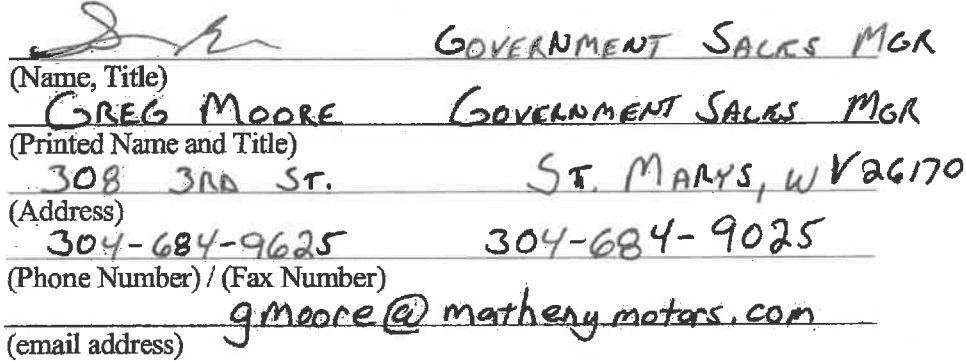 GOVERNMENT SALES MGR
(Name, Title)
GREG MOORE GOVERNMENT SALES MGR
(Printed Name and Title)
308 3RD ST. ST. MARYS, WV 26170
(Address)
304-684-9625 304-684-9025
(Phone Number) / (Fax Number)
gmoore@mathenymotors.com
(email address)